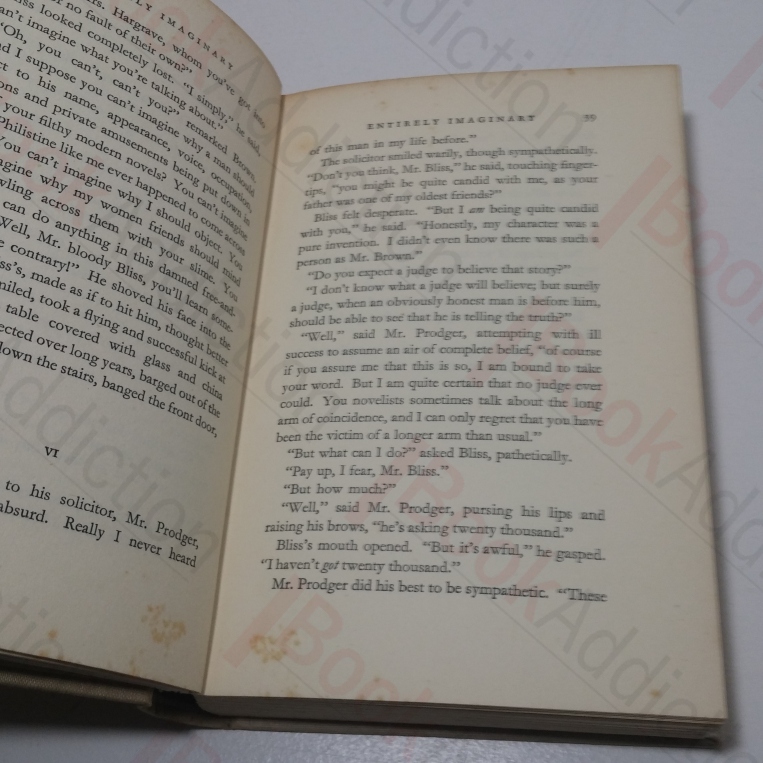 LY IMAGINARY
rs. Hargrave, whom you've got into
or no fault of their own?"
liss looked completely lost. "I simply," he said,
an't imagine what you're talking about."
"Oh, you can't, can't you?" remarked Brown.
d I suppose you can't imagine why a man should
ct to his name, appearance, voice, occupation,
ons and private amusements being put down in
f your filthy modern novels? You can't imagine
Philistine like me ever happened to come across
You can't imagine why I should object. You
agine why my women friends should mind
wling across them with your slime. You
can do anything in this damned free-and-
Well, Mr. bloody Bliss, you'll learn some-
e contrary!" He shoved his face into the
ss's, made as if to hit him, thought better
miled, took a flying and successful kick at
table covered with glass and china
ected over long years, barged out of the
down the stairs, banged the front door,
VI
to his solicitor, Mr. Prodger,
absurd. Really I never heard
ENTIRELY IMAGINARY 59
of this man in my life before."
The solicitor smiled warily, though sympathetically.
"Don't you think, Mr. Bliss," he said, touching finger-
tips, "you might be quite candid with me, as your
father was one of my oldest friends?"
Bliss felt desperate. "But I am being quite candid
with you," he said. "Honestly, my character was a
pure invention. I didn't even know there was such a
person as Mr. Brown."
"Do you expect a judge to believe that story?"
"I don't know what a judge will believe; but surely
a judge, when an obviously honest man is before him,
should be able to see that he is telling the truth?"
"Well," said Mr. Prodger, attempting with ill
success to assume an air of complete belief, "of course
if you assure me that this is so, I am bound to take
your word. But I am quite certain that no judge ever
could. You novelists sometimes talk about the long
arm of coincidence, and I can only regret that you have
been the victim of a longer arm than usual."
"But what can I do?" asked Bliss, pathetically.
"Pay up, I fear, Mr. Bliss."
"But how much?"
"Well," said Mr. Prodger, pursing his lips and
raising his brows, "he's asking twenty thousand."
Bliss's mouth opened. "But it's awful," he gasped.
"I haven't got twenty thousand."
Mr. Prodger did his best to be sympathetic. "These
BookAddiction